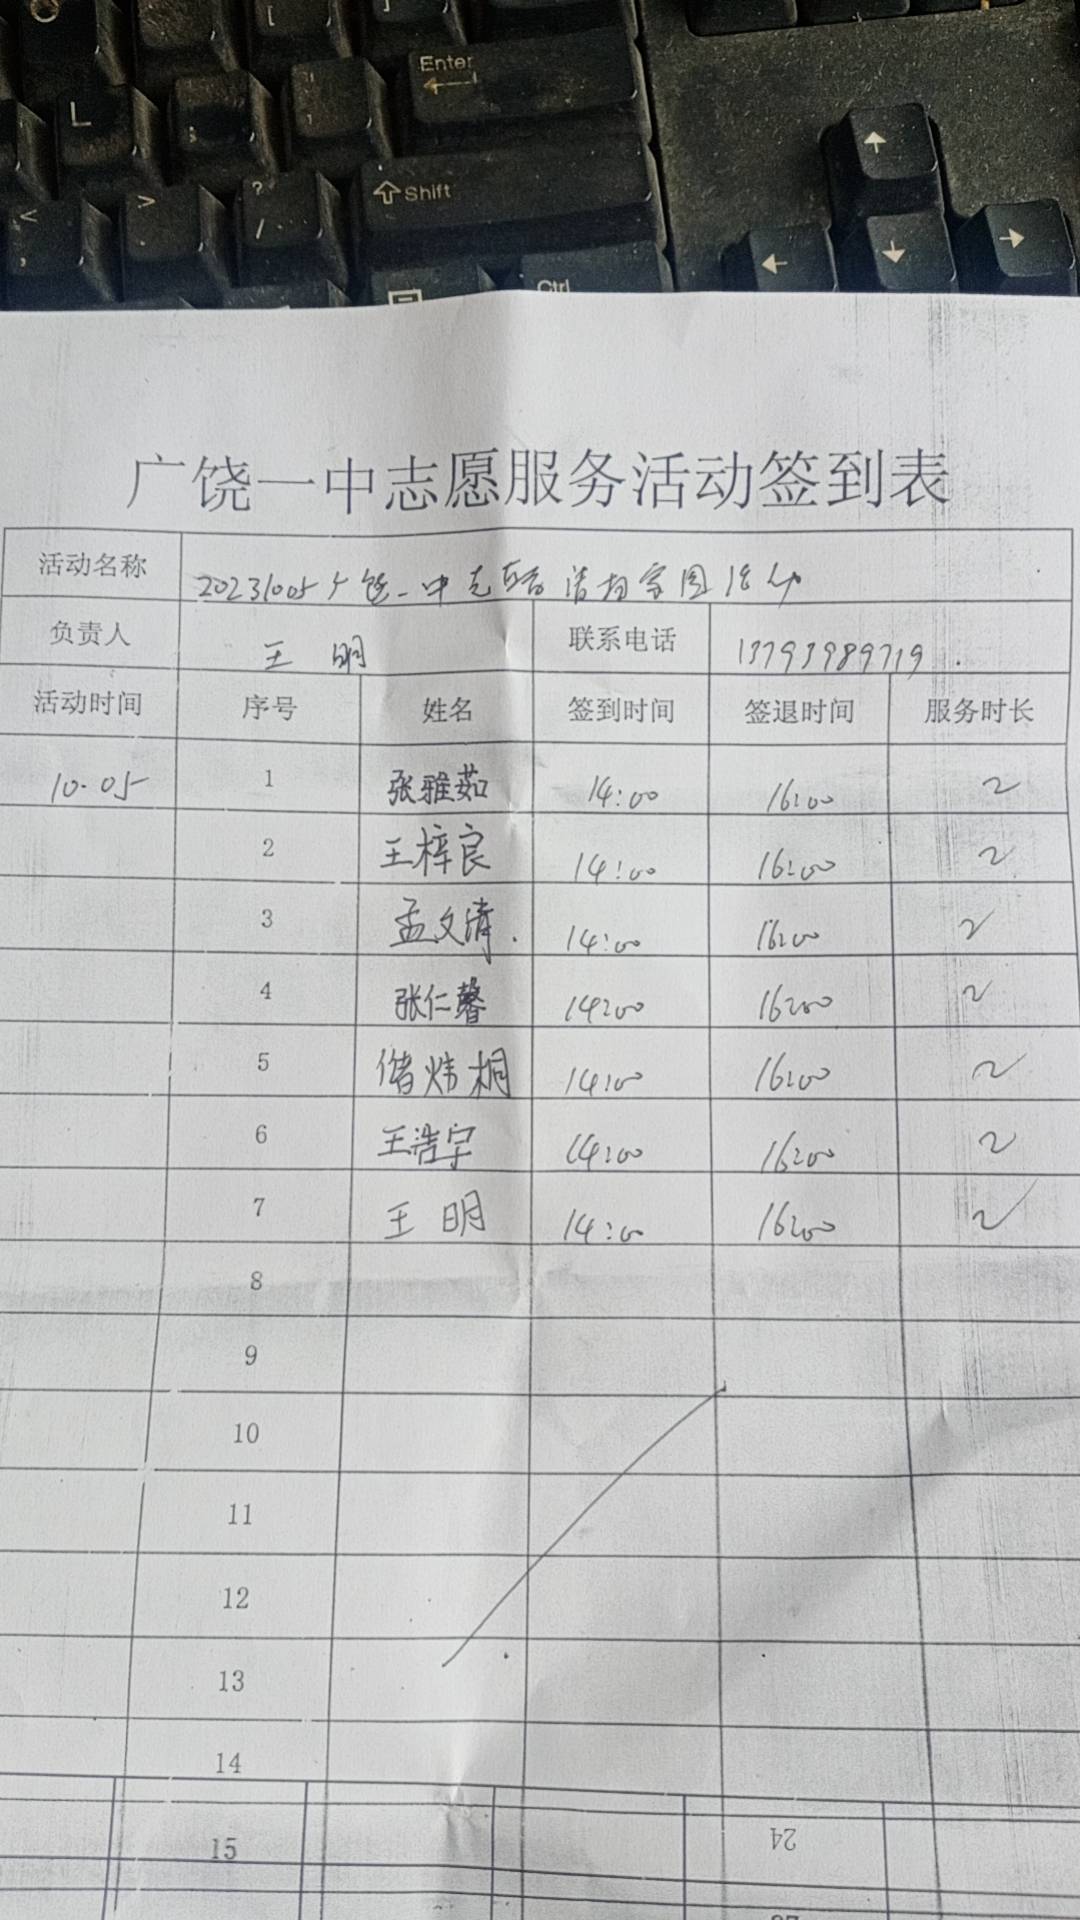 [ ]
Enter
L ; " '
Shift
< , > . ? /
Ctrl
广饶一中志愿服务活动签到表
活动名称 20231005广饶一中志愿者清扫家园活动
负责人 王明 联系电话 13793989719
活动时间 序号 姓名 签到时间 签退时间 服务时长
10.05 1 张雅茹 14:00 16:00 2
2 王梓良 14:00 16:00 2
3 孟文清 14:00 16:00 2
4 张仁馨 14:00 16:00 2
5 储炜桐 14:00 16:00 2
6 王浩宇 14:00 16:00 2
7 王明 14:00 16:00 2
8
9
10
11
12
13
14
15
24